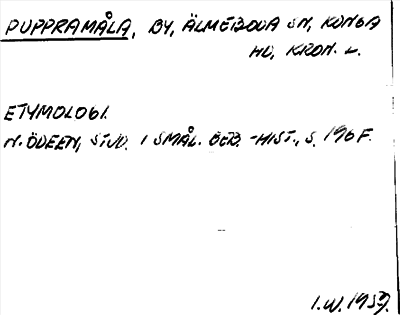 PUPPRAMÅLA, BY, ÄLMEBODA SN, KONGA
HD, KRON. L.
ETYMOLOGI.
N. ÖDEEN, STUD. I SMÅL. BEB.-HIST., S. 196 F.
I.W. 1959.